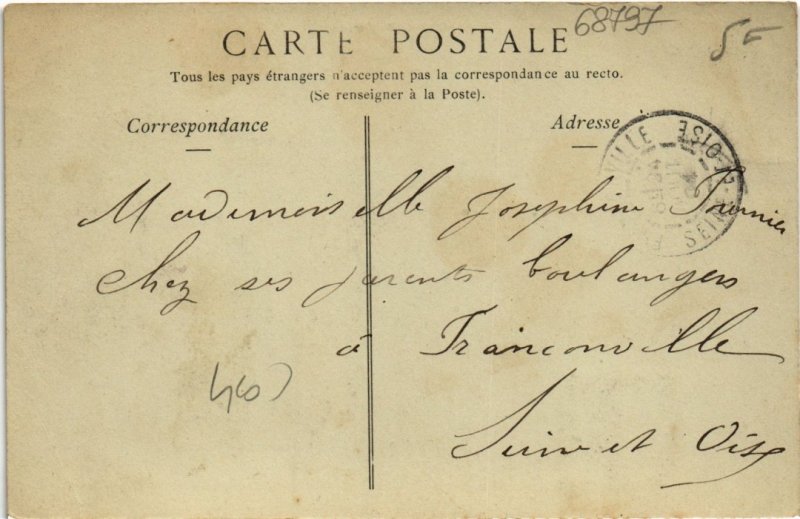 68797
5 F
CARTE POSTALE
Tous les pays étrangers n'acceptent pas la correspondance au recto.
(Se renseigner à la Poste).
Correspondance
Adresse
VILLE SEINE-ET-OISE
Mademoiselle Josephine
Chez ses parents boulangers
à Franconville
Seine et Oise